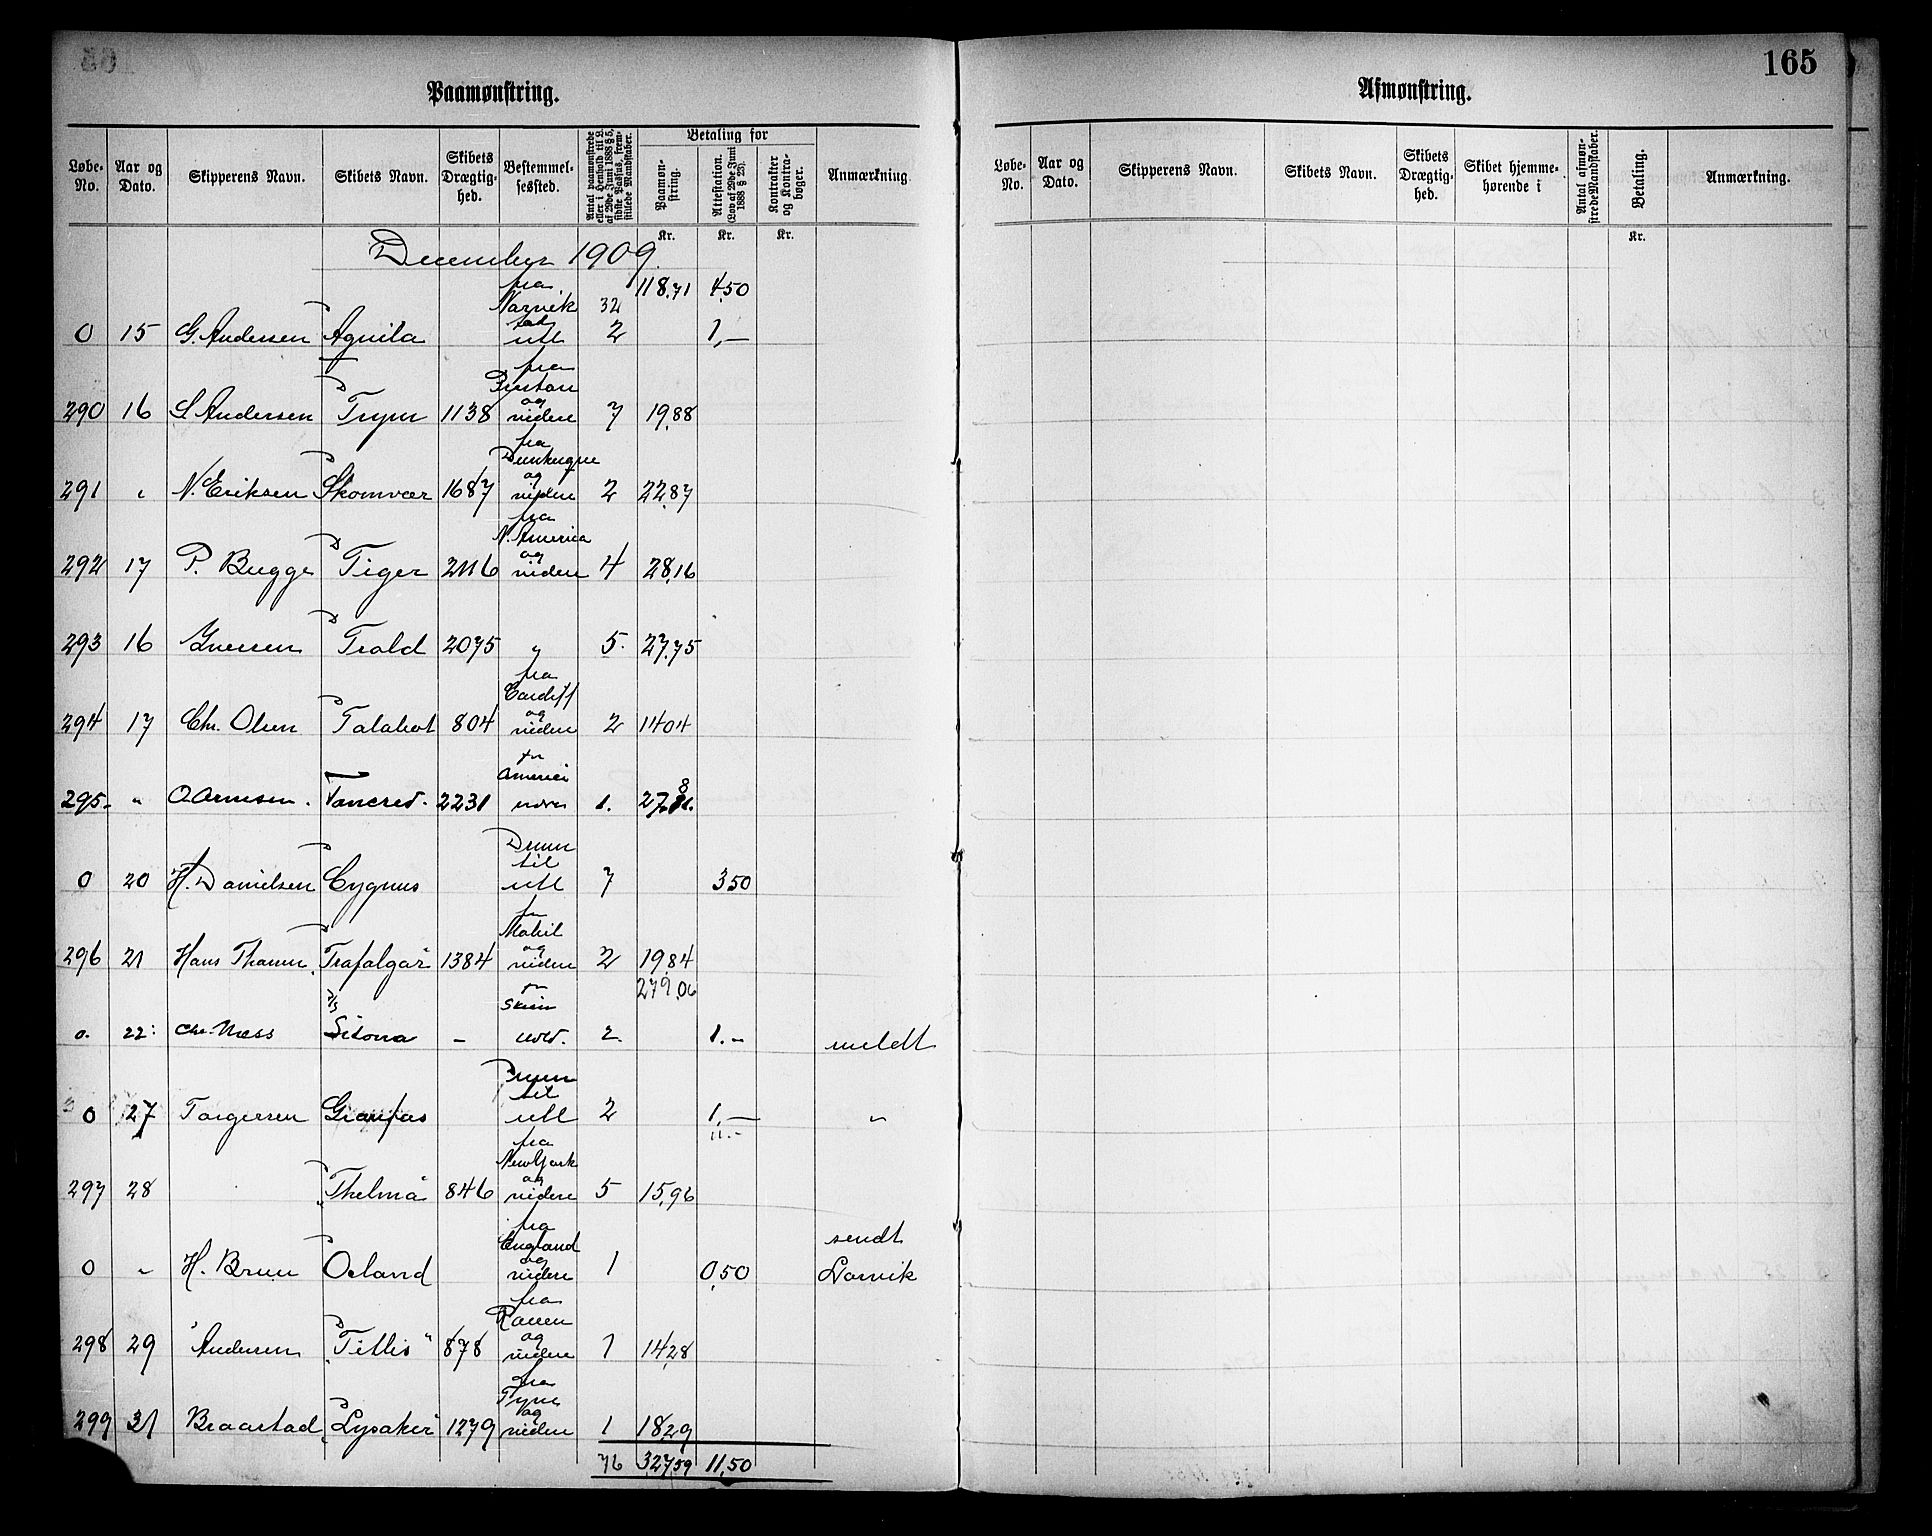 165
Paamønstring.
Afmønstring.
Løbe-No. Aar og Dato. Skipperens Navn. Skibets Navn. Skibets Drægtighed. Bestemmelsessted. Antal paamønstrede eller i Henhold til L. af 29de Juni 1888 § 5, sidste Passus, fremstillede Mandskaber. Betaling for Paamønstring. Attestation. (Lov af 29de Juni 1888 § 23). Kontrakter og Kontrabøger. Anmærkning
Løbe-No. Aar og Dato. Skipperens Navn. Skibets Navn. Skibets Drægtighed. Skibet hjemmehørende i Antal afmønstrede Mandskaber. Betaling. Anmærkning.
Kr. Kr. Kr. Kr.
December 1909
118,71 4,50
fra
Narvik 32
0 15 G. Andersen Aquila utl 2 1,—
fra
Boston
og
290 16 S Andersen Trym 1138 videre 7 19,88
fra
Dunkerque
og
291 " N. Eriksen Skomvær 1687 videre 2 22,87
fra
N. America
og
292 17 P. Bugge Tiger 2116 videre 4 28,16
293 16 Iversen Trold 2075 " 5. 27,75
fra
Cardiff
og
294 17 Chr. Olsen Talabot 804 videre 2 14,04
fra
America
295- " O Arnesen. Tancred. 2231 1. 27,81.
Drmn
til
0 20 H. Danielsen Cygnus utl 7 3,50
fr
Mobil
og
296 21 Hans Thommesen "Trafalgar" 1384 videre 2 19,84
279,06
fra
D/S Skien
0. 22. Chr. Næss Sitona - utld. 2. 1.- meldt
Drmn
til
0 27 Torgersen Granfos utl 2 1,— "
11.-
fra
New York
og
297 28 "Thelma" 846 videre 5 15,96
fra
England sendt
og
0 " H. Bruu Osland videre 1 0,50 Larvik
fra
Rouen
og
298 29 Andersen "Titlis" 878 videre 1 14,28
fra
Tyne
og
299 31 Braastad "Lysaker" 1279 videre 1 18,29
76 327,59 11,50